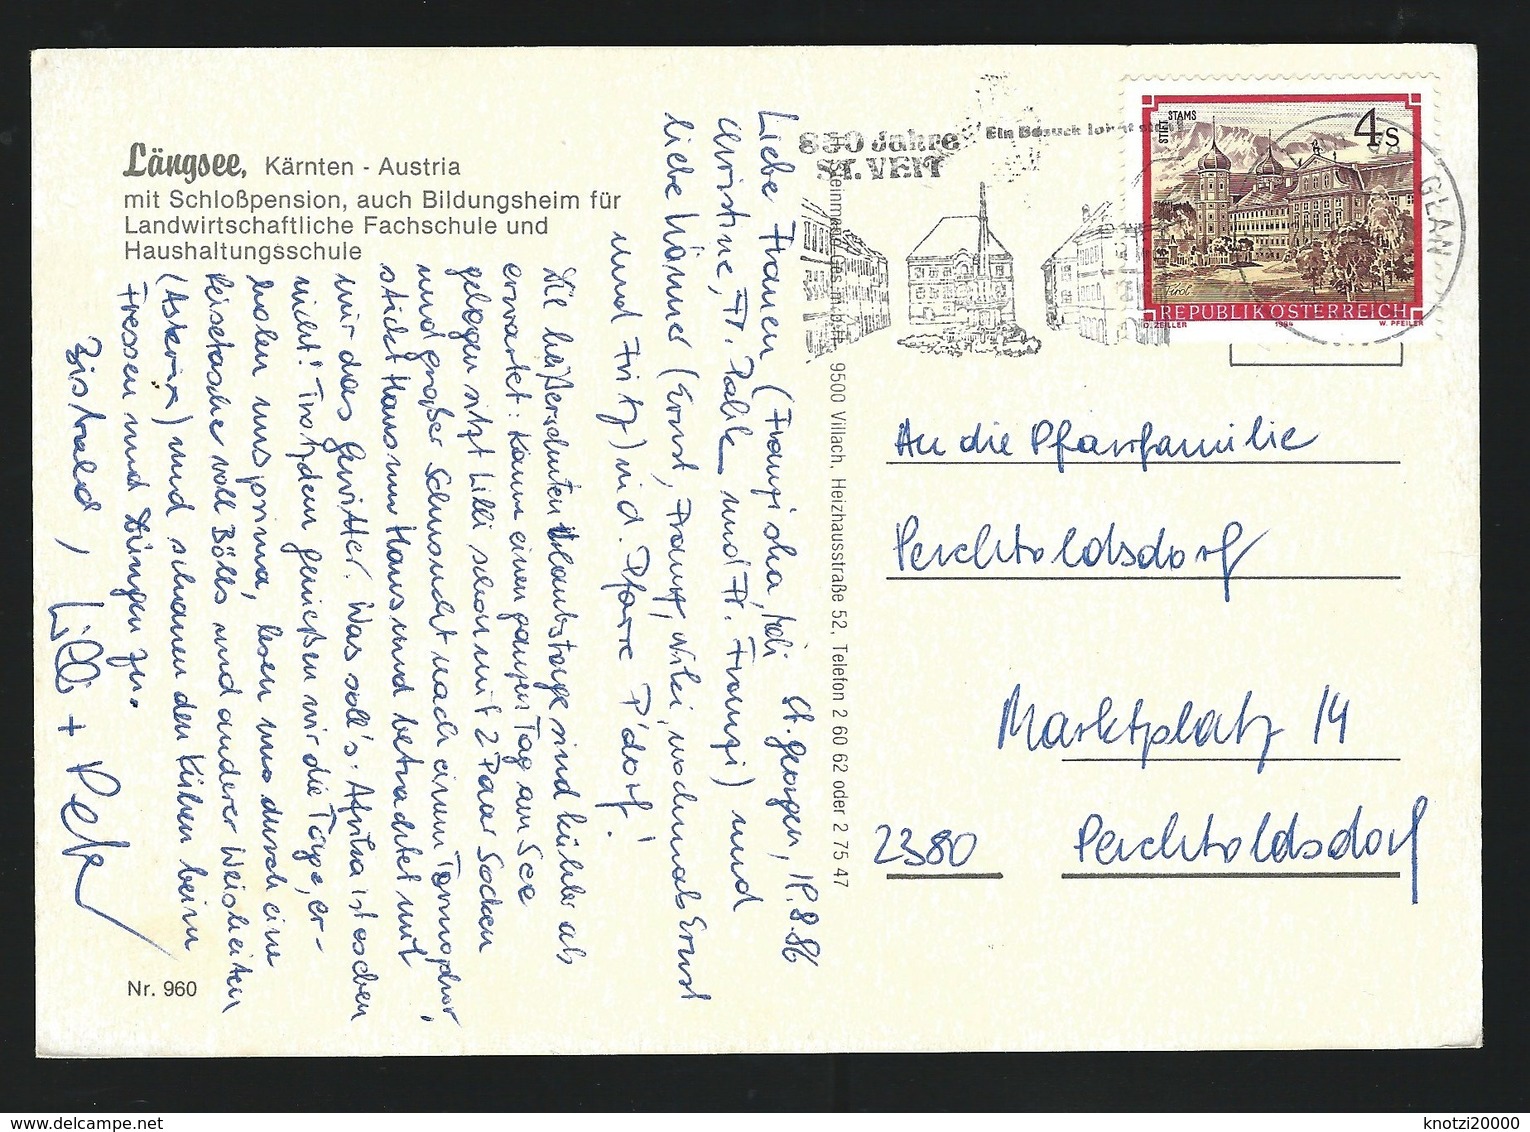 Längsee, Kärnten - Austria
mit Schloßpension, auch Bildungsheim für
Landwirtschaftliche Fachschule und
Haushaltungsschule
Nr. 960
St. Georgen, 18.8.86
Liebe Frauen (Franziska, Heli
Christine, Fr. Palik und Fr. Franzi) und
liebe Männer (Ernst, Franz, Willi, nochmals Ernst
und Fritz) u. d. Pfarre P'dorf!
Die heißersehnten Urlaubstage sind kühler als
erwartet: Kaum einen ganzen Tag am See
gelegen sitzt Lilli schon mit 2 Paar Socken
und großer Sehnsucht nach einem
stickt Haus um Haus und betrachtet mit
mir das Gewitter. Was soll's. Afrika ist eben
nicht! Trotzdem genießen wir die Tage, er-
holen uns prima, lesen uns durch eine
Reisetasche voll Bölls und anderer Weisheiten
(Asterix) und schauen den Kühen beim
Fressen und Düngen zu.
Bis bald,
Lilli + Peter
Ges.m.b.H. 9500 Villach, Heizhausstraße 52, Telefon 2 60 62 oder 2 75 47
850 Jahre
ST. VEIT
Ein Besuch lohnt
GLAN
STIFT STAMS
4 S
Tirol
REPUBLIK ÖSTERREICH
O. ZEILLER 1984 W. PFEILER
An die Pfarrfamilie
Perchtoldsdorf
Marktplatz 14
2380 Perchtoldsdorf
knotzi20000